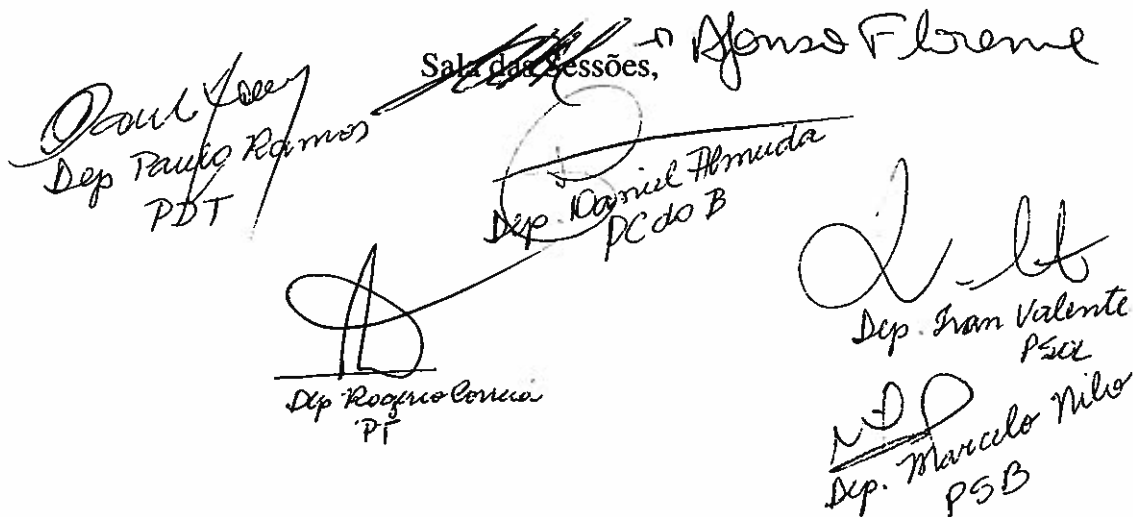 Sala das Sessões,
Afonso Florence
Dep Paulo Ramos
PDT
Dep. Daniel Almeida
PCdoB
Dep. Ivan Valente
PSOL
Dep Rogerio Correia
PT
Dep. Marcelo Nilo
PSB